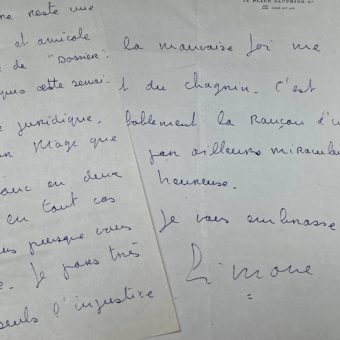 me reste une
et amicale
e de "Dossiers".
quis cette semai-
e juridique,
ur Mage que
donc en deux
en tout cas
us puisque vous
e. Je pars très
seuls l'injustice
PLACE DAUPHINE
la mauvaise foi me
t du chagrin. C'est
bablement la rançon d'u
par ailleurs miracul
heureuse.
Je vous embrasse
Simone